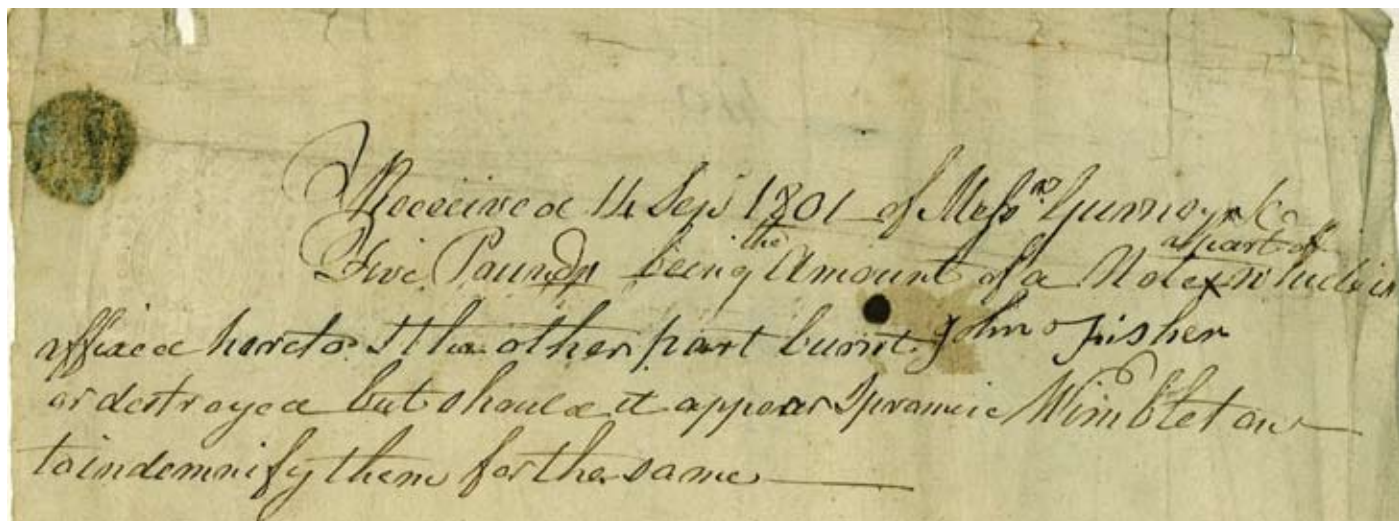 Received 14 Sep 1801 of Messrs Gurney & Co
Five Pounds being the Amount of a Note a part of which is
affixed hereto & the other part burnt John Fisher
or destroyed but should it appear I promise Wimbleton
to indemnify them for the same